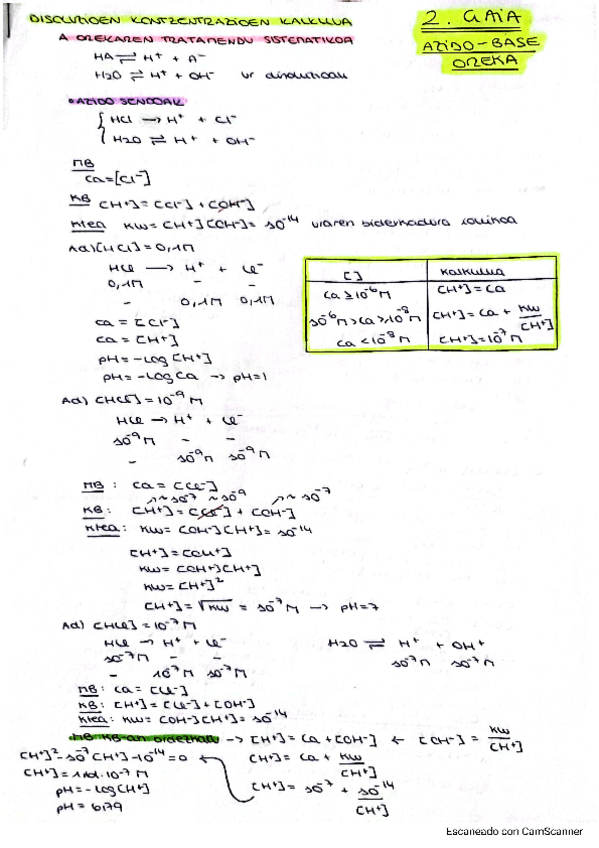 DISOLUZIOEN KONTZENTRAZIOEN KALKULUA
2. GAIA
AZIDO-BASE
OREKA
A OREKAREN TRATAMENDU SISTEMATIKOA
HA ⇌ H⁺ + A⁻
H2O ⇌ H⁺ + OH⁻ ur disoluzioak
• AZIDO SENDOAK
HCl → H⁺ + Cl⁻
H2O ⇌ H⁺ + OH⁻
MB
Ca=[Cl⁻]
KB [H⁺]=[Cl⁻]+[OH⁻]
Ktea KW=[H⁺][OH⁻]=10⁻¹⁴ uraren biderkadura ionikoa
Ad)[HCl]=0,1M
HCl → H⁺ + Cl⁻
0,1M - -
- 0,1M 0,1M
Ca = [Cl⁻]
Ca = [H⁺]
pH=-log[H⁺]
pH=-log Ca → pH=1
[ ] KALKULUA
Ca ≥ 10⁻⁶M [H⁺]=Ca
10⁻⁶M>Ca>10⁻⁸M [H⁺]=Ca + KW/[H⁺]
Ca<10⁻⁸M [H⁺]=10⁻⁷M
Ad) [HCl]=10⁻⁹M
HCl → H⁺ + Cl⁻
10⁻⁹M - -
- 10⁻⁹M 10⁻⁹M
MB : Ca=[Cl⁻]
~10⁻⁷ ~10⁻⁹ ~10⁻⁷
KB: [H⁺]=[Cl⁻]+[OH⁻]
Ktea: KW=[OH⁻][H⁺]=10⁻¹⁴
[H⁺]=[OH⁻]
KW=[H⁺][H⁺]
KW=[H⁺]²
[H⁺]=√KW = 10⁻⁷M → pH=7
Ad) [HCl]=10⁻⁷M
HCl → H⁺ + Cl⁻ H2O ⇌ H⁺ + OH⁺
10⁻⁷M - - 10⁻⁷M 10⁻⁷M
- 10⁻⁷M 10⁻⁷M
MB: Ca=[Cl⁻]
KB: [H⁺]=[Cl⁻]+[OH⁻]
Ktea: KW=[OH⁻][H⁺]=10⁻¹⁴
MB KB-an ordezkatu → [H⁺]=Ca+[OH⁻] ← [OH⁻]=KW/[H⁺]
[H⁺]²-10⁻⁷[H⁺]-10⁻¹⁴=0 ← [H⁺]=Ca + KW/[H⁺]
[H⁺]=1,61·10⁻⁷M [H⁺]=10⁻⁷ + 10⁻¹⁴/[H⁺]
pH=-log[H⁺]
pH=6,79
Escaneado con CamScanner